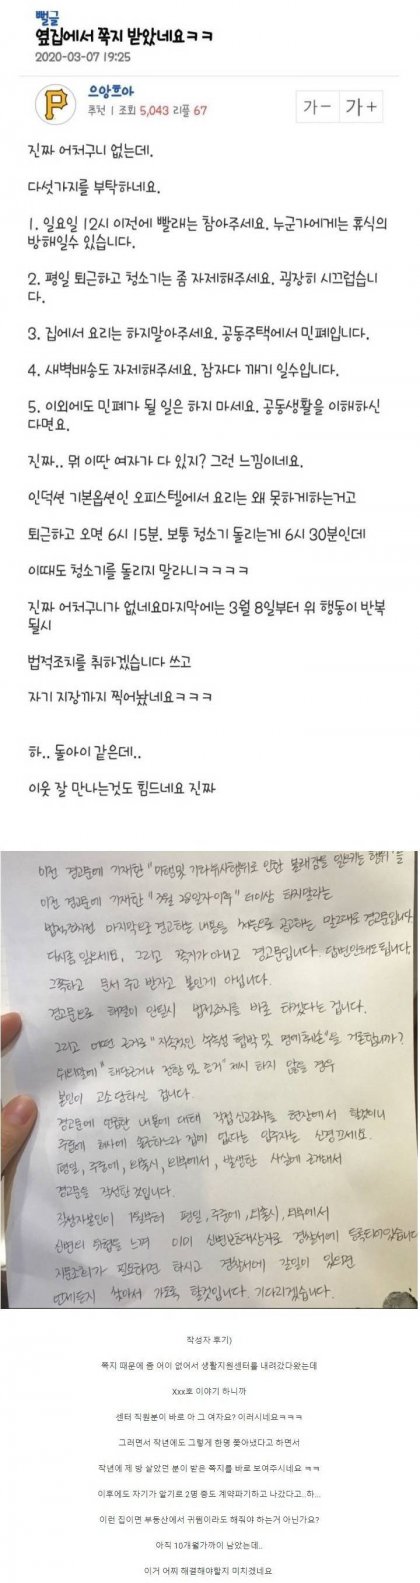 뻘글
옆집에서 쪽지 받았네요ㅋㅋ
2020-03-07 19:25
P
으앙흐아
추천 | 조회 5,043 리플 67
가- 가+
진짜 어처구니 없는데.
다섯가지를 부탁하네요.
1. 일요일 12시 이전에 빨래는 참아주세요. 누군가에게는 휴식의
방해일수 있습니다.
2. 평일 퇴근하고 청소기는 좀 자제해주세요. 굉장히 시끄럽습니
다.
3. 집에서 요리는 하지말아주세요. 공동주택에서 민폐입니다.
4. 새벽배송도 자제해주세요. 잠자다 깨기 일수입니다.
5. 이외에도 민폐가 될 일은 하지 마세요. 공동생활을 이해하신
다면요.
진짜.. 뭐 이딴 여자가 다 있지? 그런 느낌이네요.
인덕션 기본옵션인 오피스텔에서 요리는 왜 못하게하는거고
퇴근하고 오면 6시 15분. 보통 청소기 돌리는게 6시 30분인데
이때도 청소기를 돌리지 말라니ㅋㅋㅋㅋ
진짜 어처구니가 없네요마지막에는 3월 8일부터 위 행동이 반복
될시
법적조치를 취하겠습니다 쓰고
자기 지장까지 찍어놨네요ㅋㅋㅋ
하.. 돌아이 같은데..
이웃 잘 만나는것도 힘드네요 진짜
이전 경고문에 기재한 인한 불쾌감을 일으키는 행위"를
이전 경고문에 기재한 더이상 하지말라는
마지막으로 경고하는 내용을 말그대로 경고문입니다.
다시좀 읽으세요, 그리고 쪽지가 아니고 경고문입니다. 답변안해도됩니다.
그쪽하고 문서 주고 받자고 붙인게 아닙니다.
경고문으로 해결이 안될시 법적조치를 바로 하겠다는 겁니다.
그리고 어떤 근거로 "지속적인 협박 및 명예훼손"을 거론합니까?
및 증거" 제시 하지 않을 경우
본인이 고소 당하실 겁니다.
경고문에 언급한 내용에 대해 직접 현장에서 할것이니
주중에 회사에 출근하느라 집에 없다는 입주자는 신경 끄세요.
평일, 주중에, 발생한 사실에 근거해서
경고문을 작성한 것입니다.
작성자본인이 1월부터 평일, 주중에,
신변의 위협을 느껴 이미 신변보호대상자로 경찰서에 등록되어있습니다
지문조회가 필요하면 하시고 경찰서에 갈일이 있으면
언제든지 찾아서 가도록 할것입니다. 기다리겠습니다.
작성자 후기)
쪽지 때문에 좀 어이 없어서 생활지원센터를 내려갔다왔는데
Xxx호 이야기 하니까
센터 직원분이 바로 아 그 여자요? 이러시네요ㅋㅋㅋ
그러면서 작년에도 그렇게 한명 쫓아냈다고 하면서
작년에 제 방 살았던 분이 받은 쪽지를 바로 보여주시네요 ㅋㅋ
이후에도 자기가 알기로 2명 중도 계약파기하고 나갔다고..하...
이런 집이면 부동산에서 귀뜸이라도 해줘야 하는거 아닌가요?
아직 10개월가까이 남았는데..
이거 어찌 해결해야할지 미치겠네요